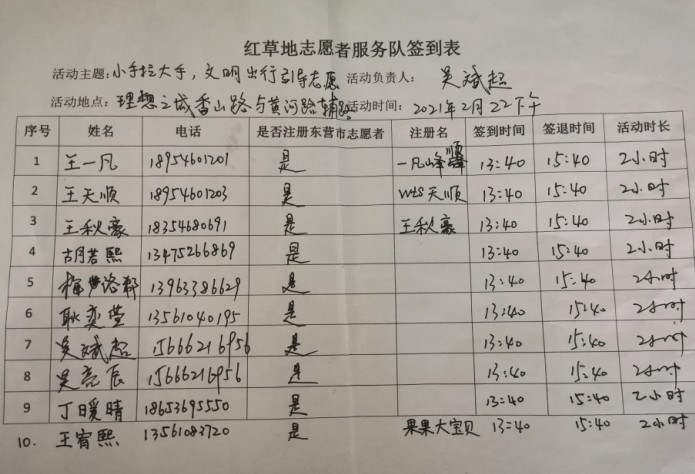 红草地志愿者服务队签到表
活动主题：小手拉大手，文明出行引导志愿 活动负责人： 吴斌超
活动地点：理想之城香山路与黄河路辅路 活动时间：2021年2月22下午
序号 姓名 电话 是否注册东营市志愿者 注册名 签到时间 签退时间 活动时长
1 王一凡 18954601201 是 一凡峰 13:40 15:40 2小时
2 王天顺 18954601203 是 wts天顺 13:40 15:40 2小时
3 王秋豪 18354680691 是 王秋豪 13:40 15:40 2小时
4 胡若熙 13475266869 是 13:40 15:40 2小时
5 13963386629 是 13:40 15:40 2小时
6 耿奕萱 13561040195 是 13:40 15:40 2小时
7 吴斌超 15666216956 是 13:40 15:40 2小时
8 吴亮辰 15666216956 是 13:40 15:40 2小时
9 丁暖晴 18653695550 是 13:40 15:40 2小时
10. 王宥熙 13561083720 是 果果大宝贝 13:40 15:40 2小时